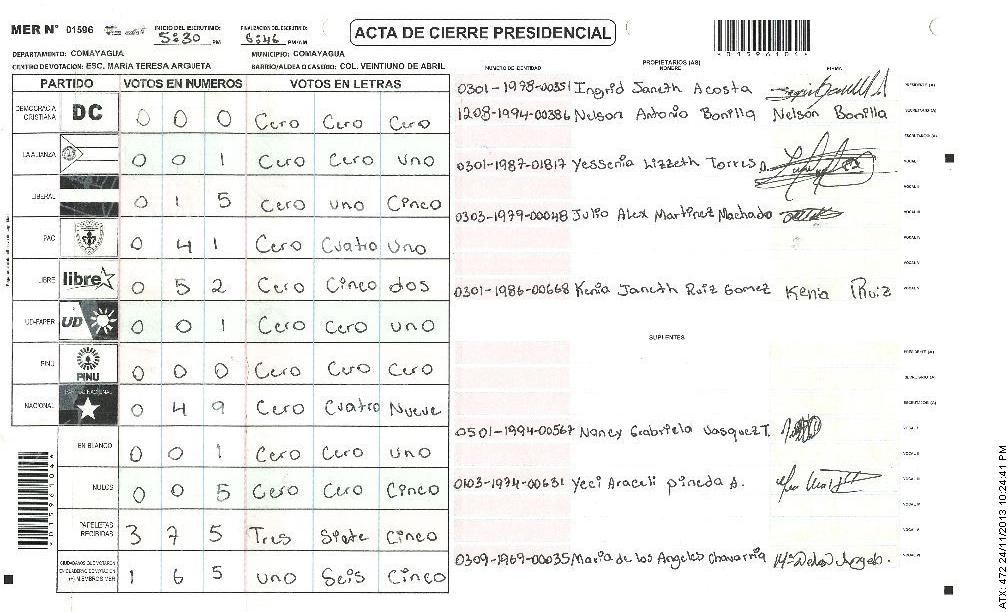 MER N° 01596
INICIO DEL ESCRUTINIO: 5:30 PM
FINALIZACION DEL ESCRUTINIO: 6:46 PM/AM
ACTA DE CIERRE PRESIDENCIAL
DEPARTAMENTO: COMAYAGUA
MUNICIPIO: COMAYAGUA
CENTRO DE VOTACION: ESC. MARIA TERESA ARGUETA
BARRIO/ALDEA O CASERIO: COL. VENTIUNO DE ABRIL
PARTIDO VOTOS EN NUMEROS VOTOS EN LETRAS
DEMOCRACIA CRISTIANA DC 0 0 0 Cero Cero Cero
LA ALIANZA 0 0 1 Cero Cero uno
LIBERAL 0 1 5 Cero uno Cinco
PAC 0 4 1 Cero Cuatro uno
LIBRE libre 0 5 2 Cero Cinco dos
UD-FAPER UD 0 0 1 Cero Cero uno
PINU PINU 0 0 0 Cero Cero Cero
NACIONAL 0 4 9 Cero Cuatro Nueve
EN BLANCO 0 0 1 Cero Cero uno
NULOS 0 0 5 Cero Cero Cinco
PAPELETAS RECIBIDAS 3 7 5 Tres Siete Cinco
CIUDADANOS QUE VOTARON EN CUADERNO DE VOTACION (+) MIEMBROS MER 1 6 5 uno Seis Cinco
NUMERO DE IDENTIDAD PROPIETARIOS (AS) NOMBRE FIRMA
0301-1978-00351 Ingrid Janeth Acosta
1208-1994-00386 Nelson Antonio Bonilla Nelson Bonilla
0301-1987-01817 Yessenia Lizzeth Torres
0303-1979-00048 Julio Alex Martinez Machado
0301-1986-00668 Kenia Janeth Ruiz Gomez Kenia Ruiz
SUPLENTES
0501-1994-00567 Nancy Grabriela Vasquez T.
0103-1974-00631 Yeci Araceli pineda A.
0309-1969-00035 Maria de los Angeles Chavarria
ATX: 472 24/11/2013 10:24:41 PM